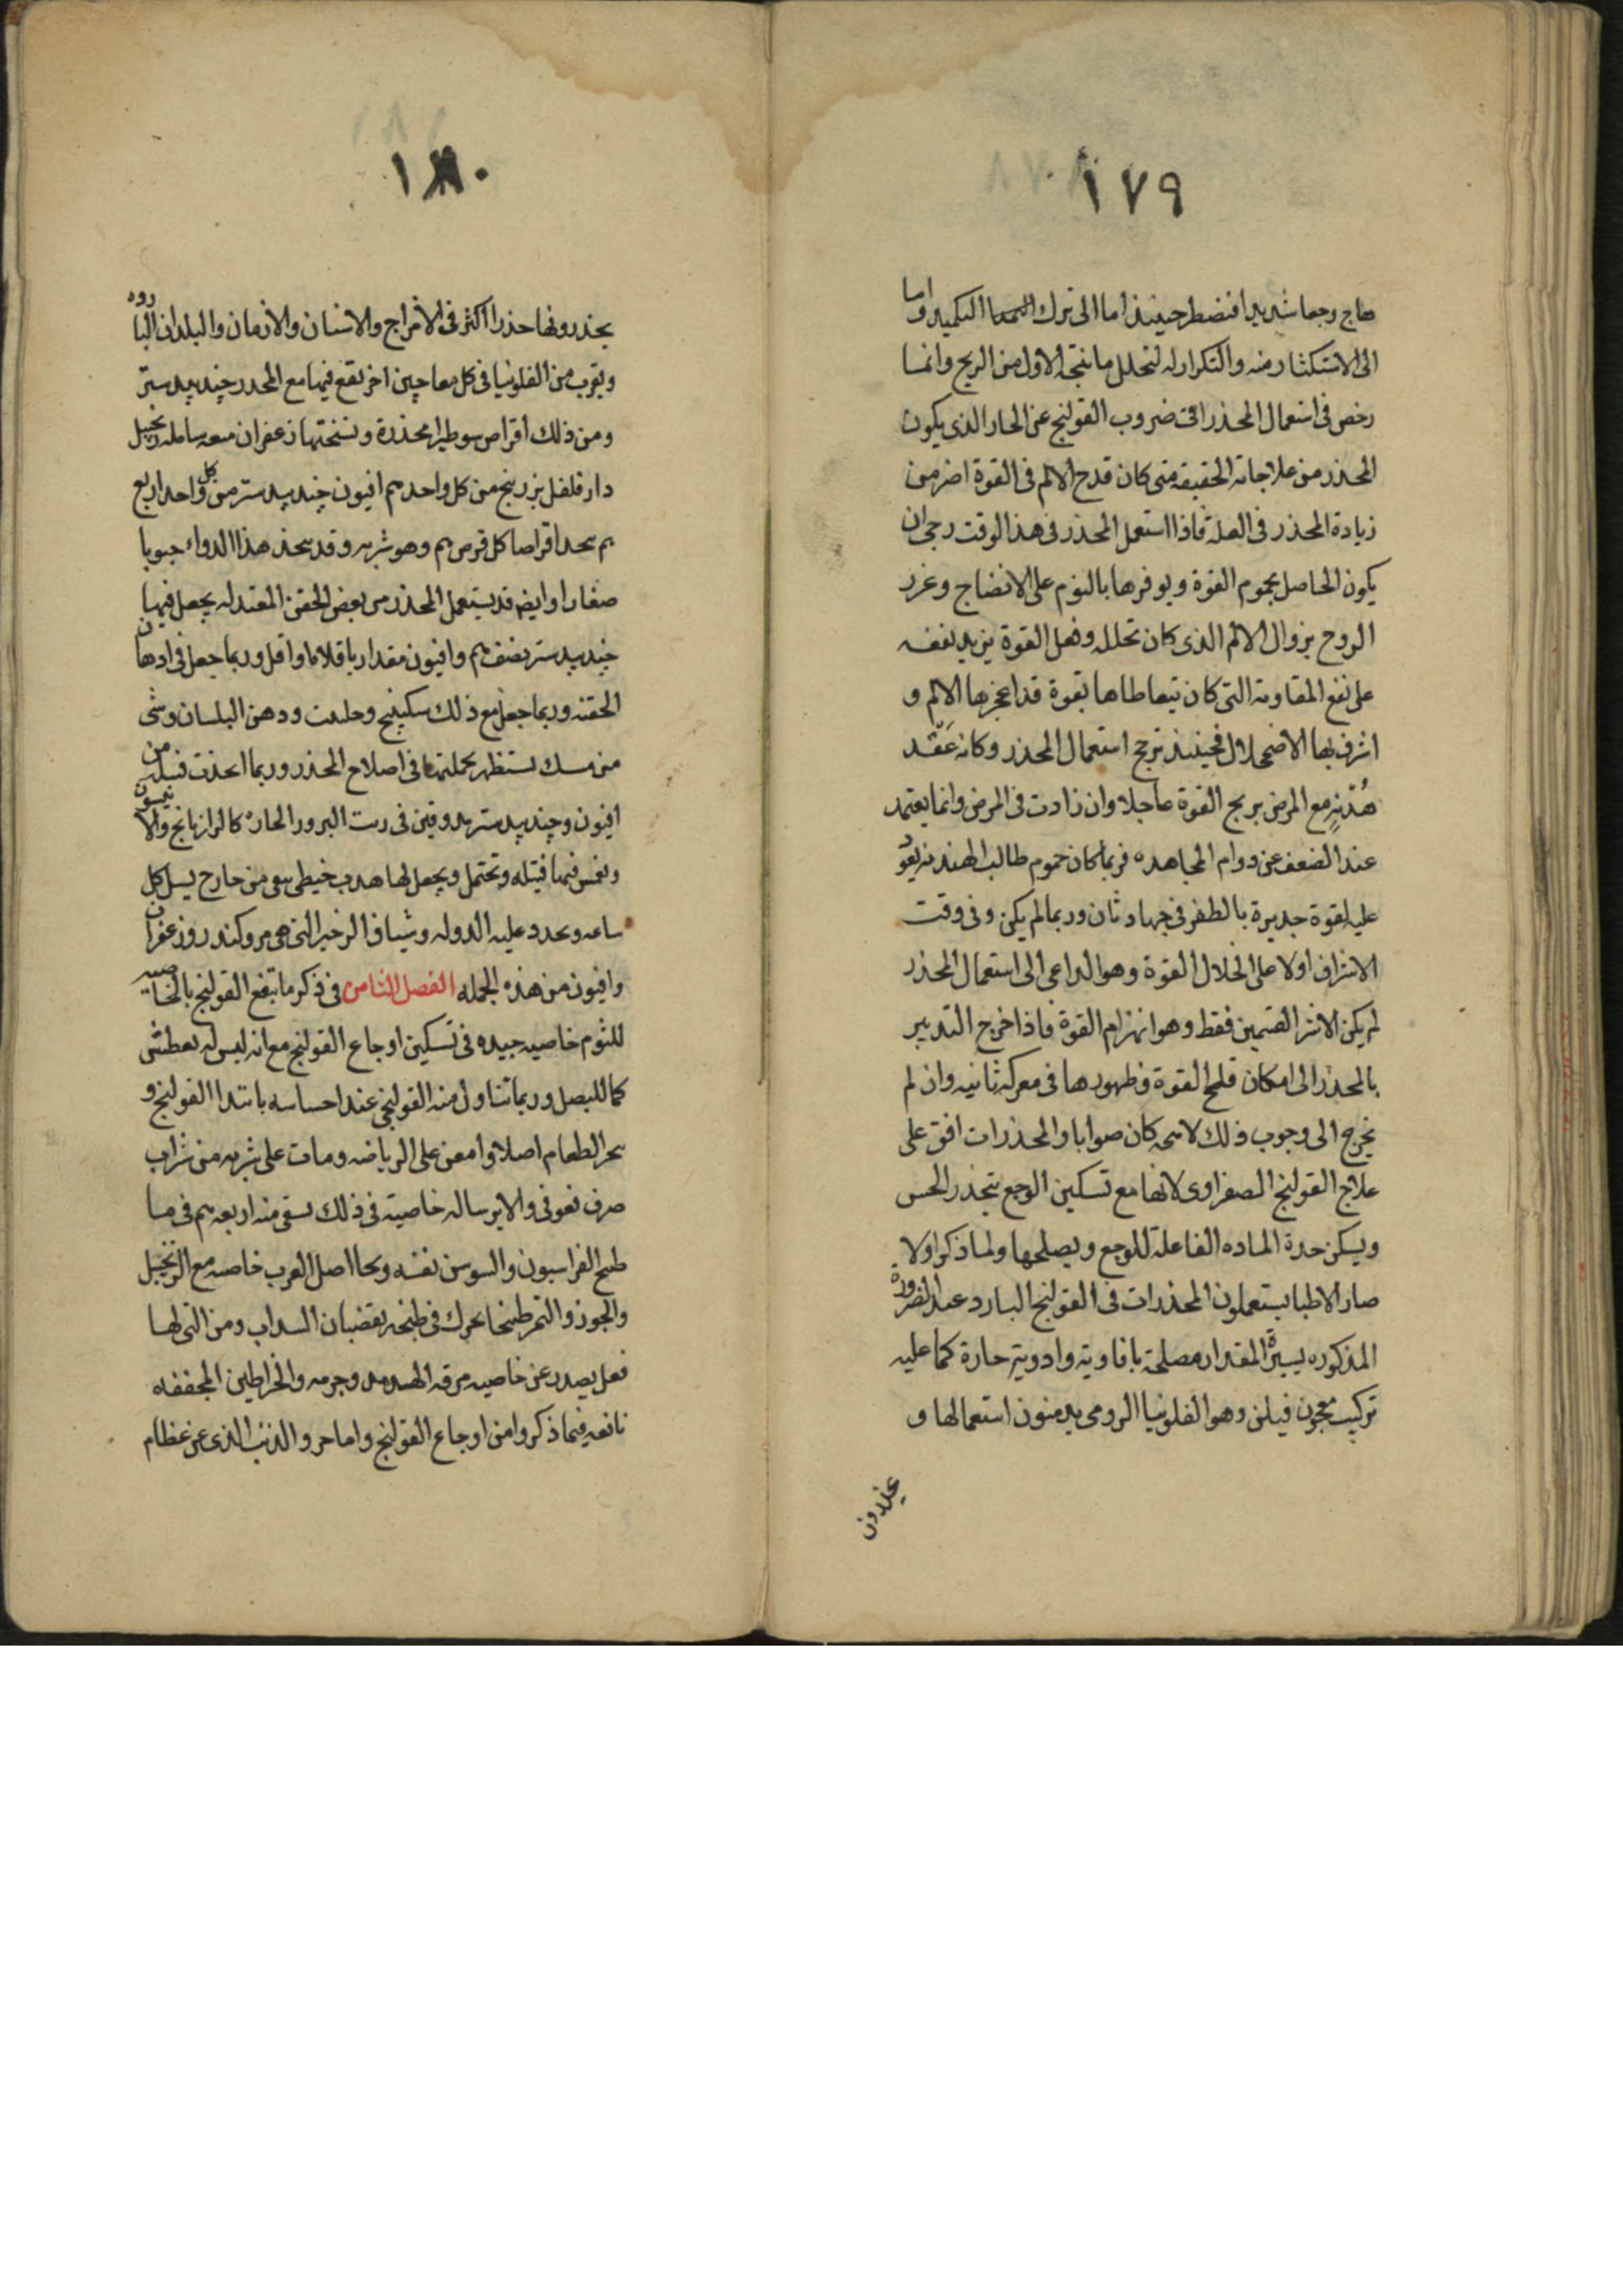 ١٧٩
هاج وجعا شديدا فنضطر حينئذ اما الى ترك التكميد واما
الى الاستكثار منه والتكرار له لتحلل ما نتجه الاول من الريح وانما
رخص فى استعمال المخدر فى ضروب القولنج عن الحار الذى يكون
المخدر من علاجاته الحقيقه متى كان قدح الالم فى القوة اضر من
زيادة المخدر فى العله فاذا استعمل المخدر فى هذا الوقت رجى ان
يكون الحاصل بجموم القوة ويوفرها بالنوم على الانضاج وغرر
الروح بزوال الالم الذى كان تحلله وفعل القوة يزيد نفعه
على نفع المقاومة التى كان يتعاطاها بقوة قد اعجزها الالم و
اشرف بها الاضمحلال فحينئذ ترجح استعمال المخدر وكانه عَقْد
هُدْنةٍ مع المرض يربح القوة عاجلا وان زادت فى المرض وانما يعتمد
عند الضعف عن دوام المجاهده فربما كان جموم طالب الهدنه يعود
عليه لقوة جديرة بالظفر فى جهاد ثان وربما لم يكن وفى وقت
الاشراف اولا على انحلال القوة وهو الداعى الى استعمال المخدر
لم يكن الا شر القسمين فقط وهو انهزام القوة فاذا اخرج التدبير
بالمخدر الى امكان فلج القوة وظهورها فى معركه ثانيه وان لم
يخرج الى وجوب ذلك لا محه كان صوابا والمخدرات افق على
علاج القولنج الصفراوى لانها مع تسكين الوجع تخدر الحس
ويسكن حدة الماده الفاعلة للوجع ويصلحها ولما ذكر اولا
صار الاطبا يستعملون المخدرات فى القولنج البارد عند الضرورة
المذكوره يسيرة المقدار مصلحة بافاويه وادوية حارة كما عليه
تركيب معجون فيلن وهو الفلونيا الرومى يدمنون استعمالها و
يحذرون
١٨٠
يحذرونها حذرا اكثر فى الامزاج والاسنان والازمان والبلدان الباروه
ويقرب من الفلونيا فى كل معاجين اخر تقع فيها مع المخدر جندبيدستر
ومن ذلك اقراص سوطيرا مخدرة ونسختها زعفران ميعه سامله زنجبيل
دار فلفل بزر بنج من كل واحد م افيون جندبيدستر من كل واحد اربع
م يتخذ اقراصا كل قرص م وهو شربه وقد يتخذ هذا الدواء حبوبا
صغارا وايضم قد يستعمل المخدر من بعض الحقن المعتدله يجعل فيها
جندبيدستر نصف م وافيون مقدار باقلاه او اقل وربما جعل فى ادهان
الحقنه وربما جعل مع ذلك سكبينج وحلتيت ودهن البلسان وشى
من مسك يستظهر بجملتها فى اصلاح المخدر وربما اتخذت فتيله من
افيون وجندبيدستر مدوفين فى زيت البزور الحاره كالرازيانج والانيسون
ونغمس فيها فتيله وتحتمل ويجعل لها هدب خيطى يبقى من خارج يسل كل
ساعه ويجدد عليه الدوله وشياف الزحير التى هى مر وكندر وزعفران
وافيون من هذه الجمله الفصل الثامن فى ذكر ما ينفع القولنج بالخاصيه
للثوم خاصيه جيده فى تسكين اوجاع القولنج مع انه ليس له تعطش
كما للبصل وربما تناول منه القولنجى عند احساسه بابتدا القولنج و
هجر الطعام اصلا وامعن على الرياضه ومات على شربه من شراب
صرف فعوفى والايرسا له خاصية فى ذلك يسقى منه اربعه م فى ما
طبخ الفراسيون والسوسن نفسه وبخا اصل الغرب خاصه مع الزنجبيل
والجوز والتمر طبخا يحرك فى طبخه بقضبان السداب ومن التى لها
فعل يصدر عن خاصيه مرقه الهدهد وجرمه والخراطين المجففه
نافعه فيما ذكروا من اوجاع القولنج واما خرو الذئب الذى عن عظام